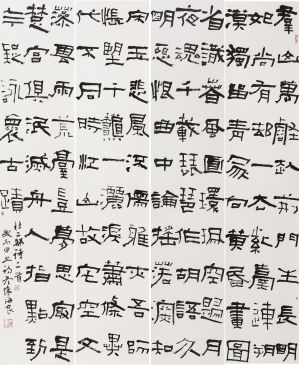 羣山萬壑赴荊門生長明
妃尚有村一去紫臺連朔
漠獨留青冢向黃昏畫圖
省識春風面環珮空歸月
夜魂千載琵琶作胡語分
明怨恨曲中論搖落深知
宋玉悲風流儒雅亦吾師
悵望千秋一灑淚蕭條異
代不同時江山故宅空文
藻雲雨荒臺豈夢思最是
楚宮俱泯滅舟人指點到
今疑詠懷古蹟
杜工部詩二首
陳海良